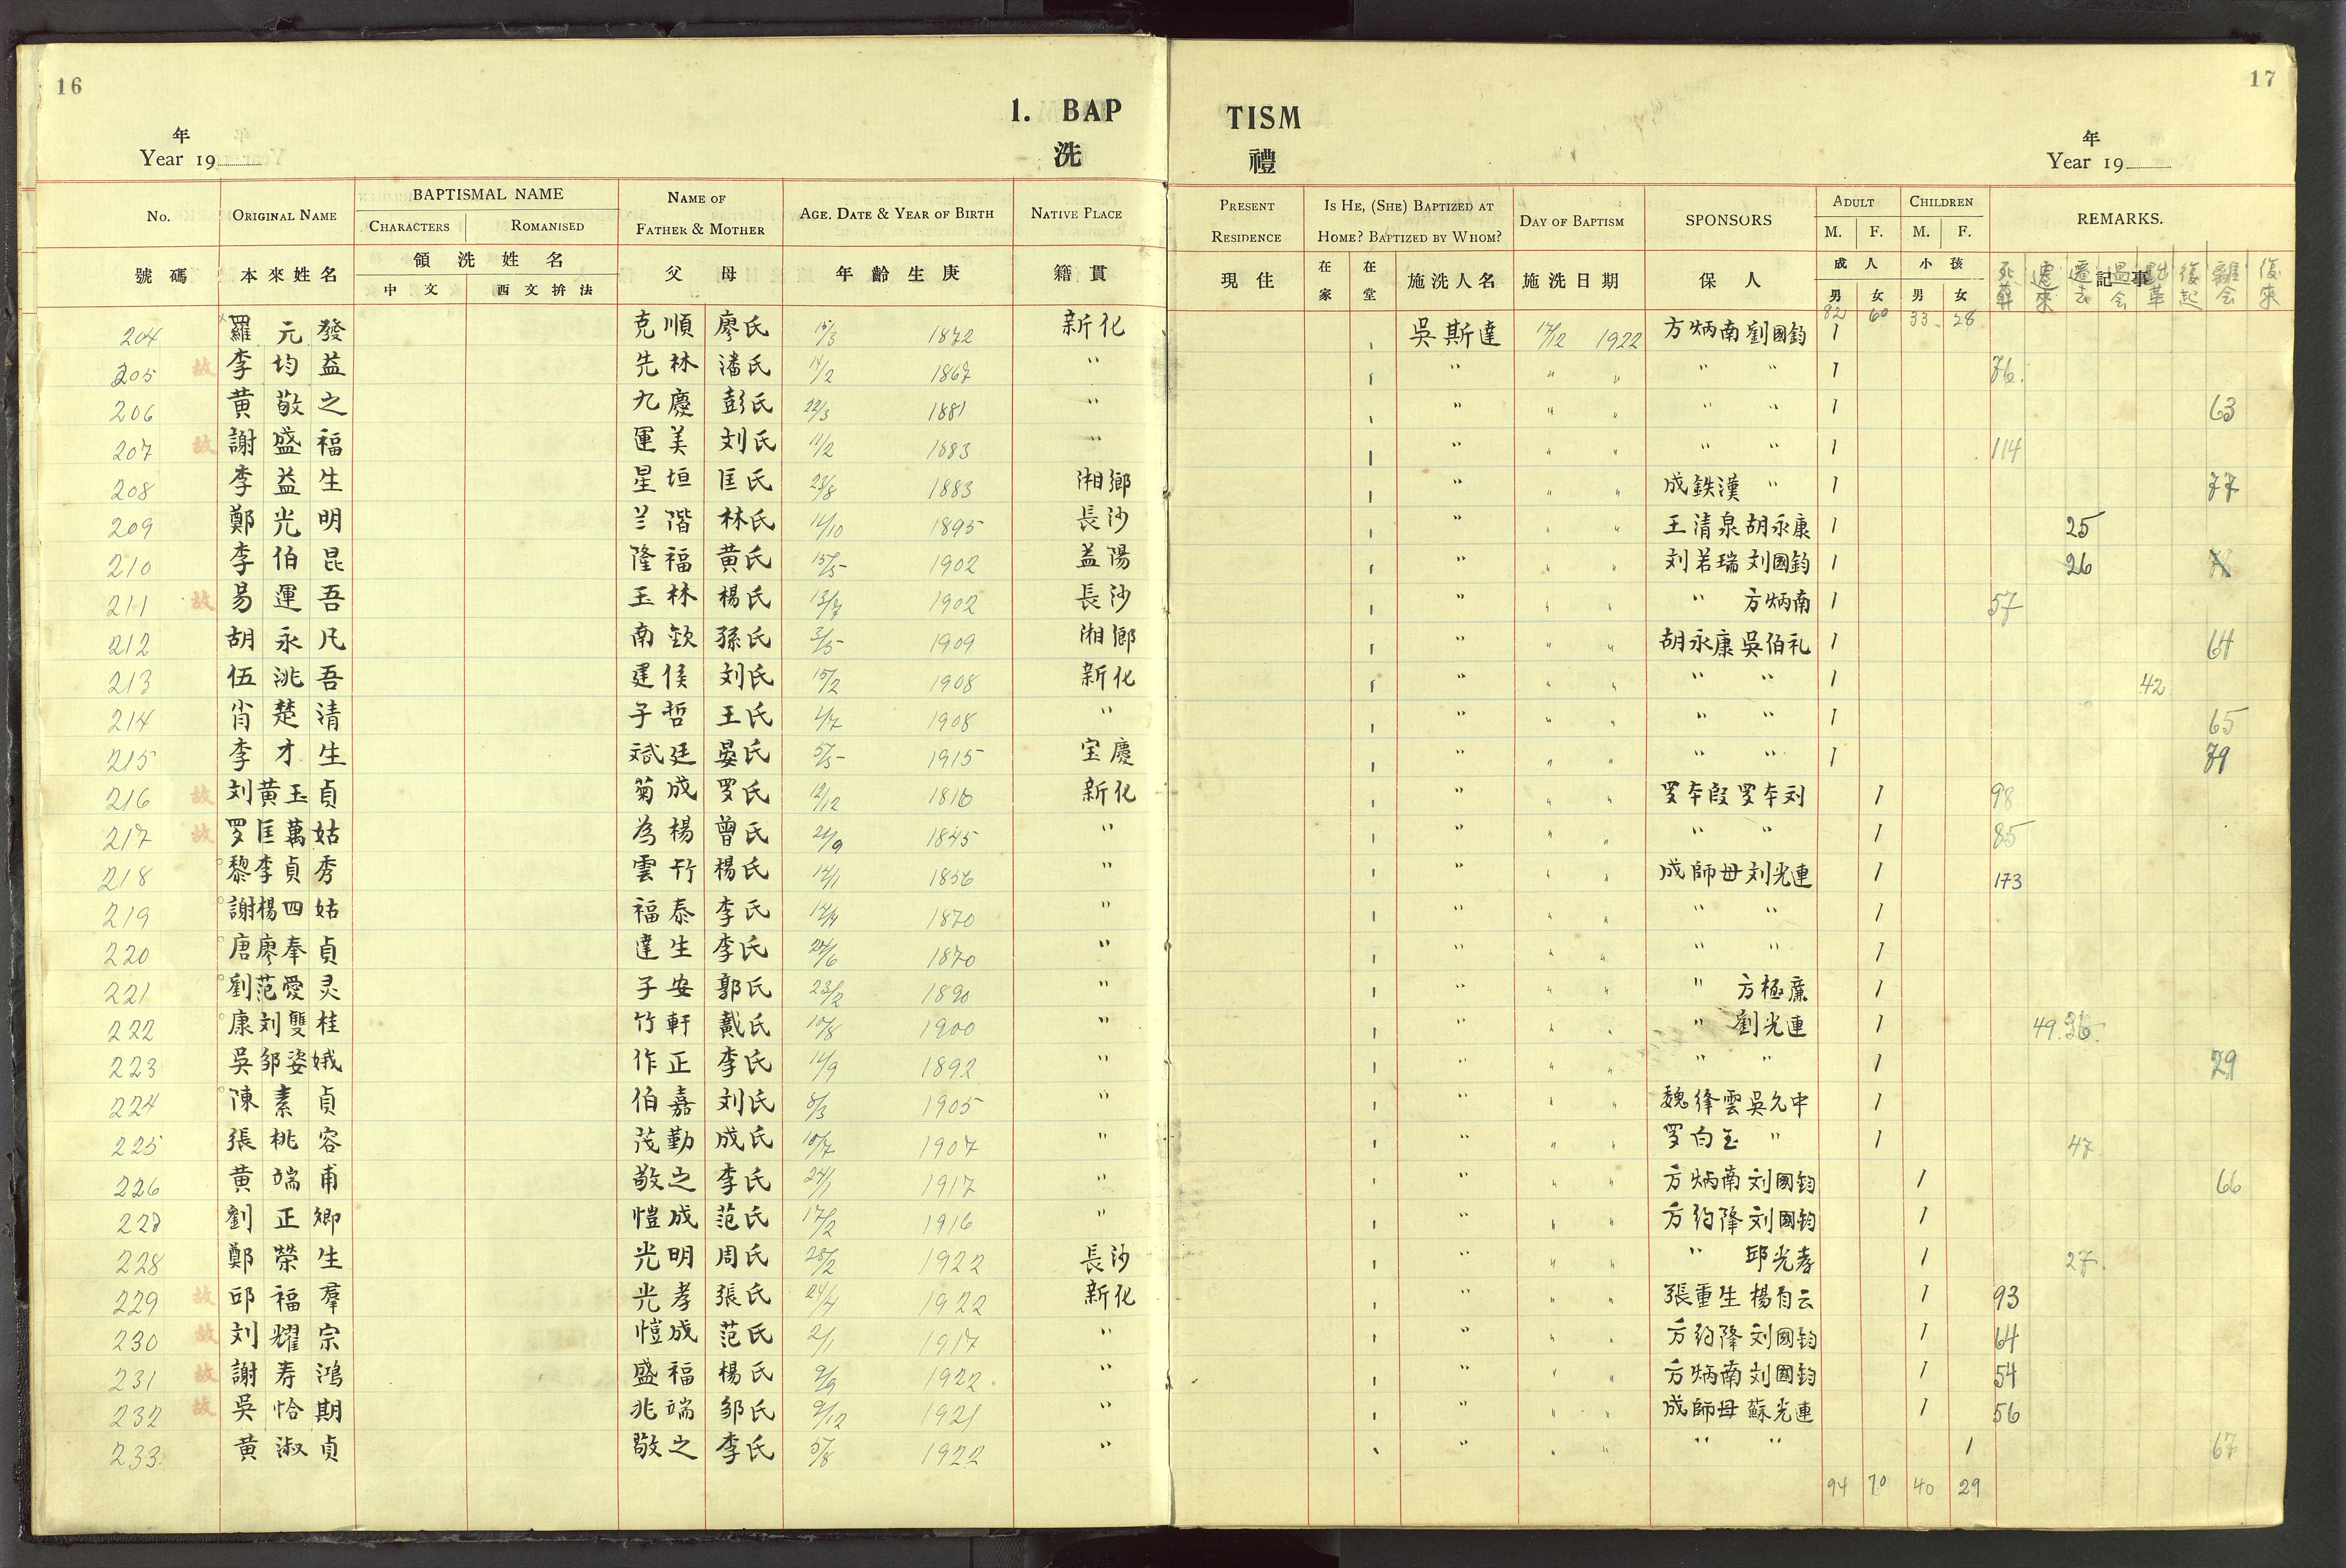 16
17
1. BAP TISM
洗 禮
年 年
Year 19 Year 19
No. ORIGINAL NAME BAPTISMAL NAME NAME OF FATHER & MOTHER AGE, DATE & YEAR OF BIRTH NATIVE PLACE PRESENT RESIDENCE IS HE, (SHE) BAPTIZED AT HOME? BAPTIZED BY WHOM? DAY OF BAPTISM SPONSORS ADULT CHILDREN REMARKS.
CHARACTERS ROMANISED M. F. M. F.
號碼 本來姓名 領洗姓名 父母 年齡生庚 籍貫 現住 在家 在堂 施洗人名 施洗日期 保人 成人 小孩 記事
中文 西文拚法 男 女 男 女 遷來 遷去 過会 後起 離会 復來
82 60 33 28
204 羅元發 克順 廖氏 15/3 1872 新化 吳斯達 17/12 1922 方炳南 劉國鈞 1
205 故 李均益 先林 潘氏 14/2 1867 " " " " " " 1 76.
206 黄敬之 九慶 彭氏 22/3 1881 " " " " " " 1 63
207 故 謝盛福 運美 刘氏 11/2 1883 " " " " " " 1 114
208 李益生 星垣 匡氏 23/8 1883 湘鄉 " " " 成鉄漢 " 1 77
209 鄭光明 兰階 林氏 14/10 1895 長沙 " " " 王清泉 胡永康 1 25
210 李伯昆 隆福 黄氏 15/5 1902 益陽 " " " 刘若瑞 刘國鈞 1 26
211 故 易運吾 玉林 楊氏 13/7 1902 長沙 " " " " 方炳南 1 57
212 胡永凡 南欽 孫氏 3/5 1909 湘鄉 " " " 胡永康 吳伯礼 1 64
213 伍洮吾 建侯 刘氏 15/2 1908 新化 " " " " " 1 42
214 肖楚清 子哲 王氏 1908 " " " " " " 1 65
215 李才生 斌廷 晏氏 5/5 1915 宝慶 " " " " " 1 79
216 故 刘黄玉貞 菊成 罗氏 12/12 1816 新化 " " " 罗本段 罗本刘 1 98
217 故 罗匡萬姑 為楊 曾氏 21/9 1845 " " " " " " 1 85
218 黎李貞秀 雲竹 楊氏 12/1 1856 " " " " 成師母 刘光連 1 173
219 謝楊四姑 福泰 李氏 1870 " " " " " " 1
220 唐廖奉貞 達生 李氏 1870 " " " " " " 1
221 劉范愛灵 子安 郭氏 23/2 1890 " " " " " 方極廉 1
222 康刘雙桂 竹軒 戴氏 10/8 1900 " " " " " 劉光連 1 49. 36.
223 吳邹姿娥 作正 李氏 14/9 1892 " " " " " " 1 29
224 陳素貞 伯嘉 刘氏 8/3 1905 " " " " 魏绛雲 吳允中 1
225 張桃容 茂勤 成氏 10/7 1907 " " " " 罗白玉 " 1 47
226 黄端甫 敬之 李氏 24/1 1917 " " " " 方炳南 刘國鈞 1 66
227 劉正卿 愷成 范氏 17/2 1916 " " " " 方約隆 刘國鈞 1
228 鄭榮生 光明 周氏 25/2 1922 長沙 " " " " 邱光孝 1 27.
229 故 邱福羣 光孝 張氏 24/4 1922 新化 " " " 張重生 楊自云 1 93
230 故 刘耀宗 愷成 范氏 2/1 1917 " " " " 方約隆 刘國鈞 1 64
231 故 謝寿鴻 盛福 楊氏 9/9 1922 " " " " 方炳南 刘國鈞 1 54
232 故 吳恰期 兆端 邹氏 9/12 1921 " " " " 成師母 蘇光連 1 56
233 黄淑貞 敬之 李氏 5/8 1922 " " " " " " 1 67
94 70 40 29